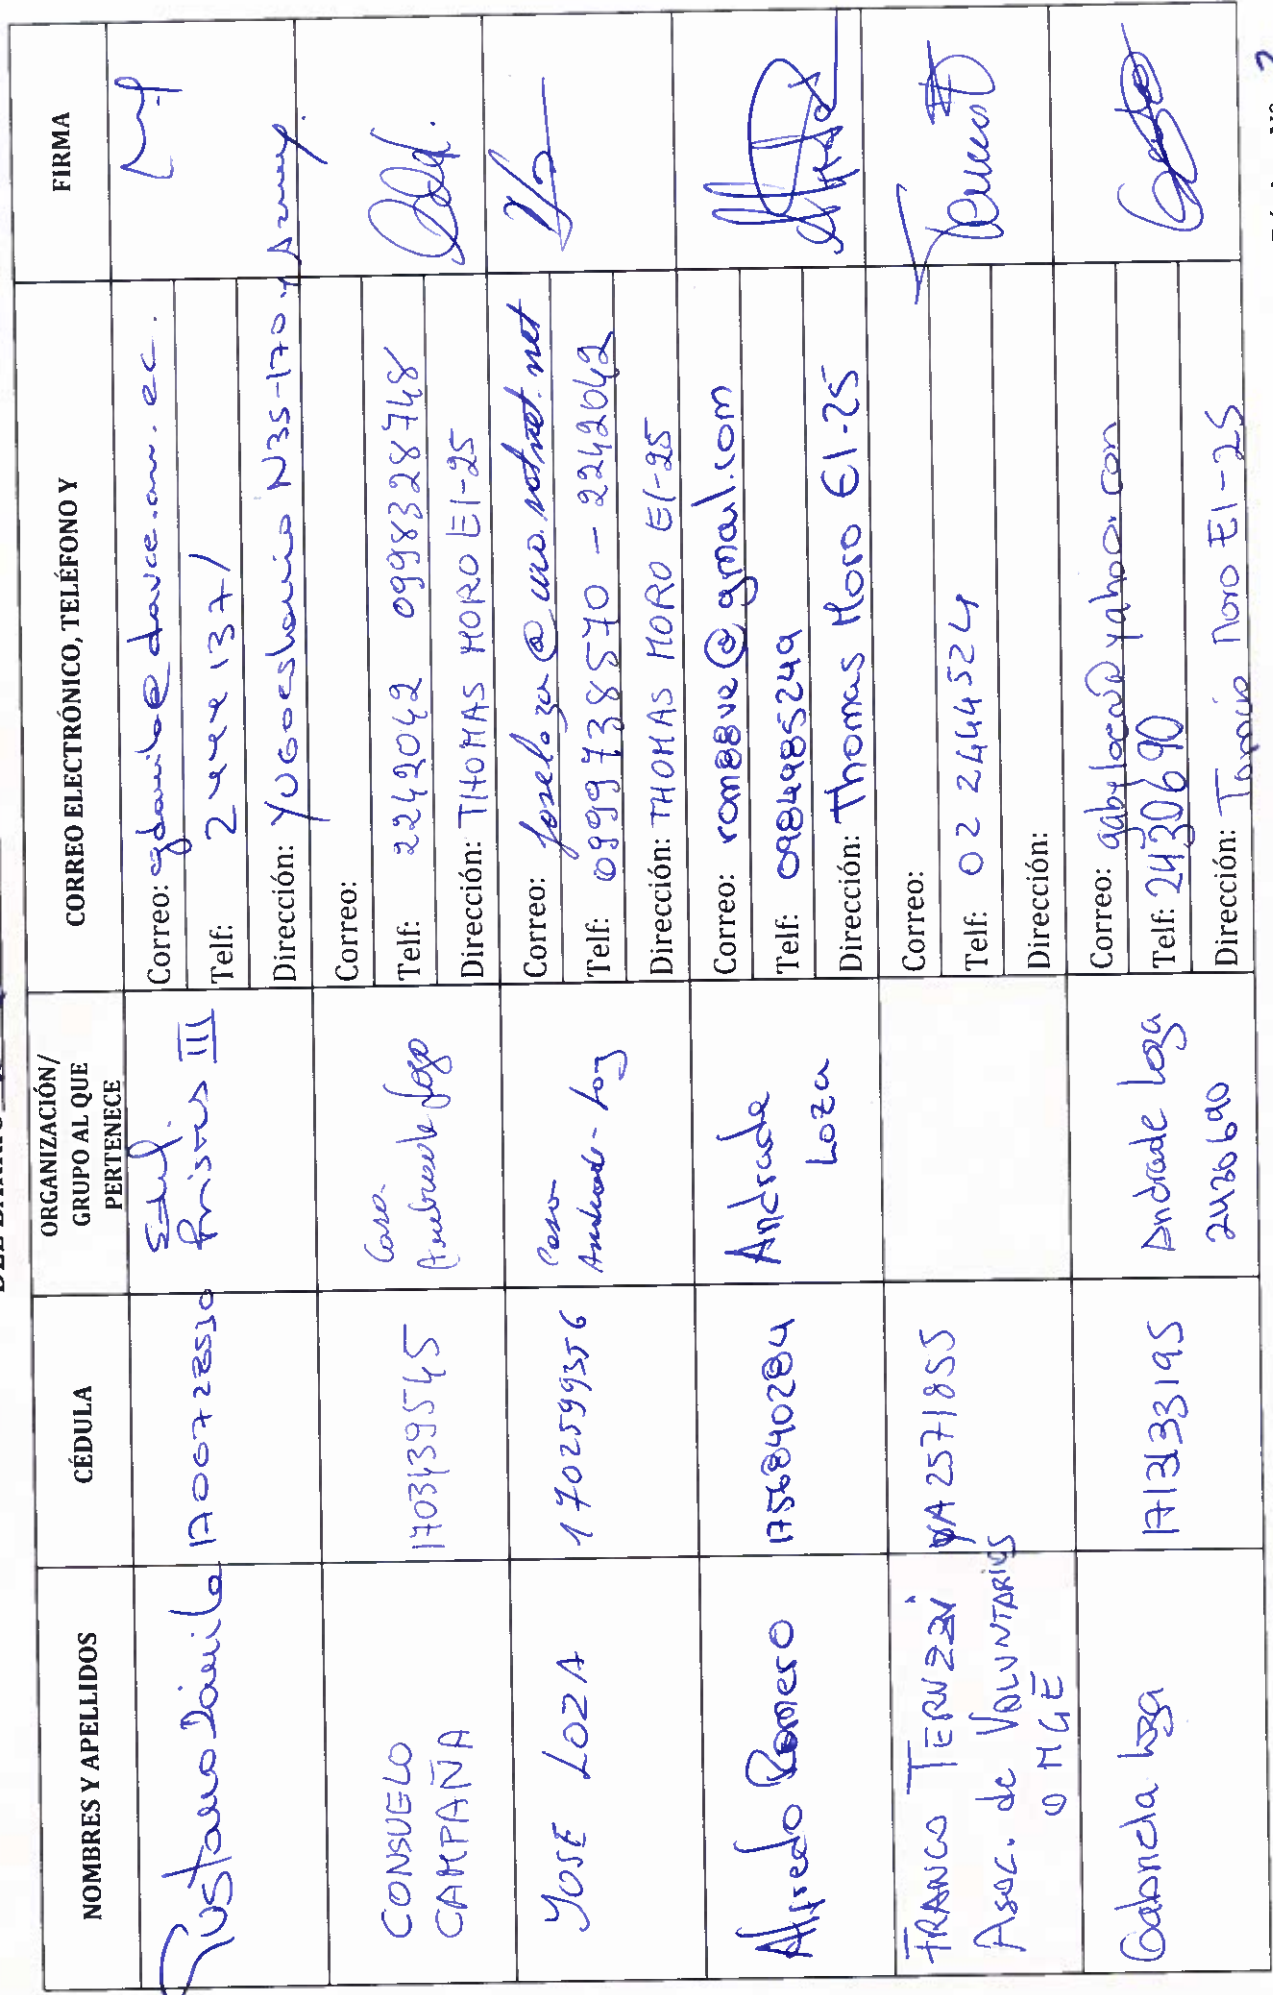 NOMBRES Y APELLIDOS
CÉDULA
ORGANIZACIÓN/
GRUPO AL QUE
PERTENECE
CORREO ELECTRÓNICO, TELÉFONO Y
FIRMA
Gustavo Dávila
17006728530
Edif.
Pristos III
Correo:
Telf: 2444137
Dirección: Yugoeslavia N35-170 y Azuay.
CONSUELO
CAMPAÑA
1703439545
Casa
Andrade Loza
Correo:
Telf: 2242042 0998328748
Dirección: THOMAS MORO E1-25
JOSE LOZA
1702599356
Casa
Andrade-Loz
Correo: joseloza@uio.satnet.net
Telf: 0999738570 - 2242042
Dirección: THOMAS MORO E1-25
Alfredo Romero
1756840284
Andrade
Loza
Correo: rom88ve@gmail.com
Telf: 0984985249
Dirección: Thomas Moro E1-25
FRANCO TERNZZI
Asoc. de VOLUNTARIOS
OMGE
YA2571855
Correo:
Telf: 02 2444524
Dirección:
Gabriela Loza
1713133195
Andrade Loza
2430690
Correo: gabyloca@yahoo.com
Telf: 2430690
Dirección: Tomás Moro E1-25